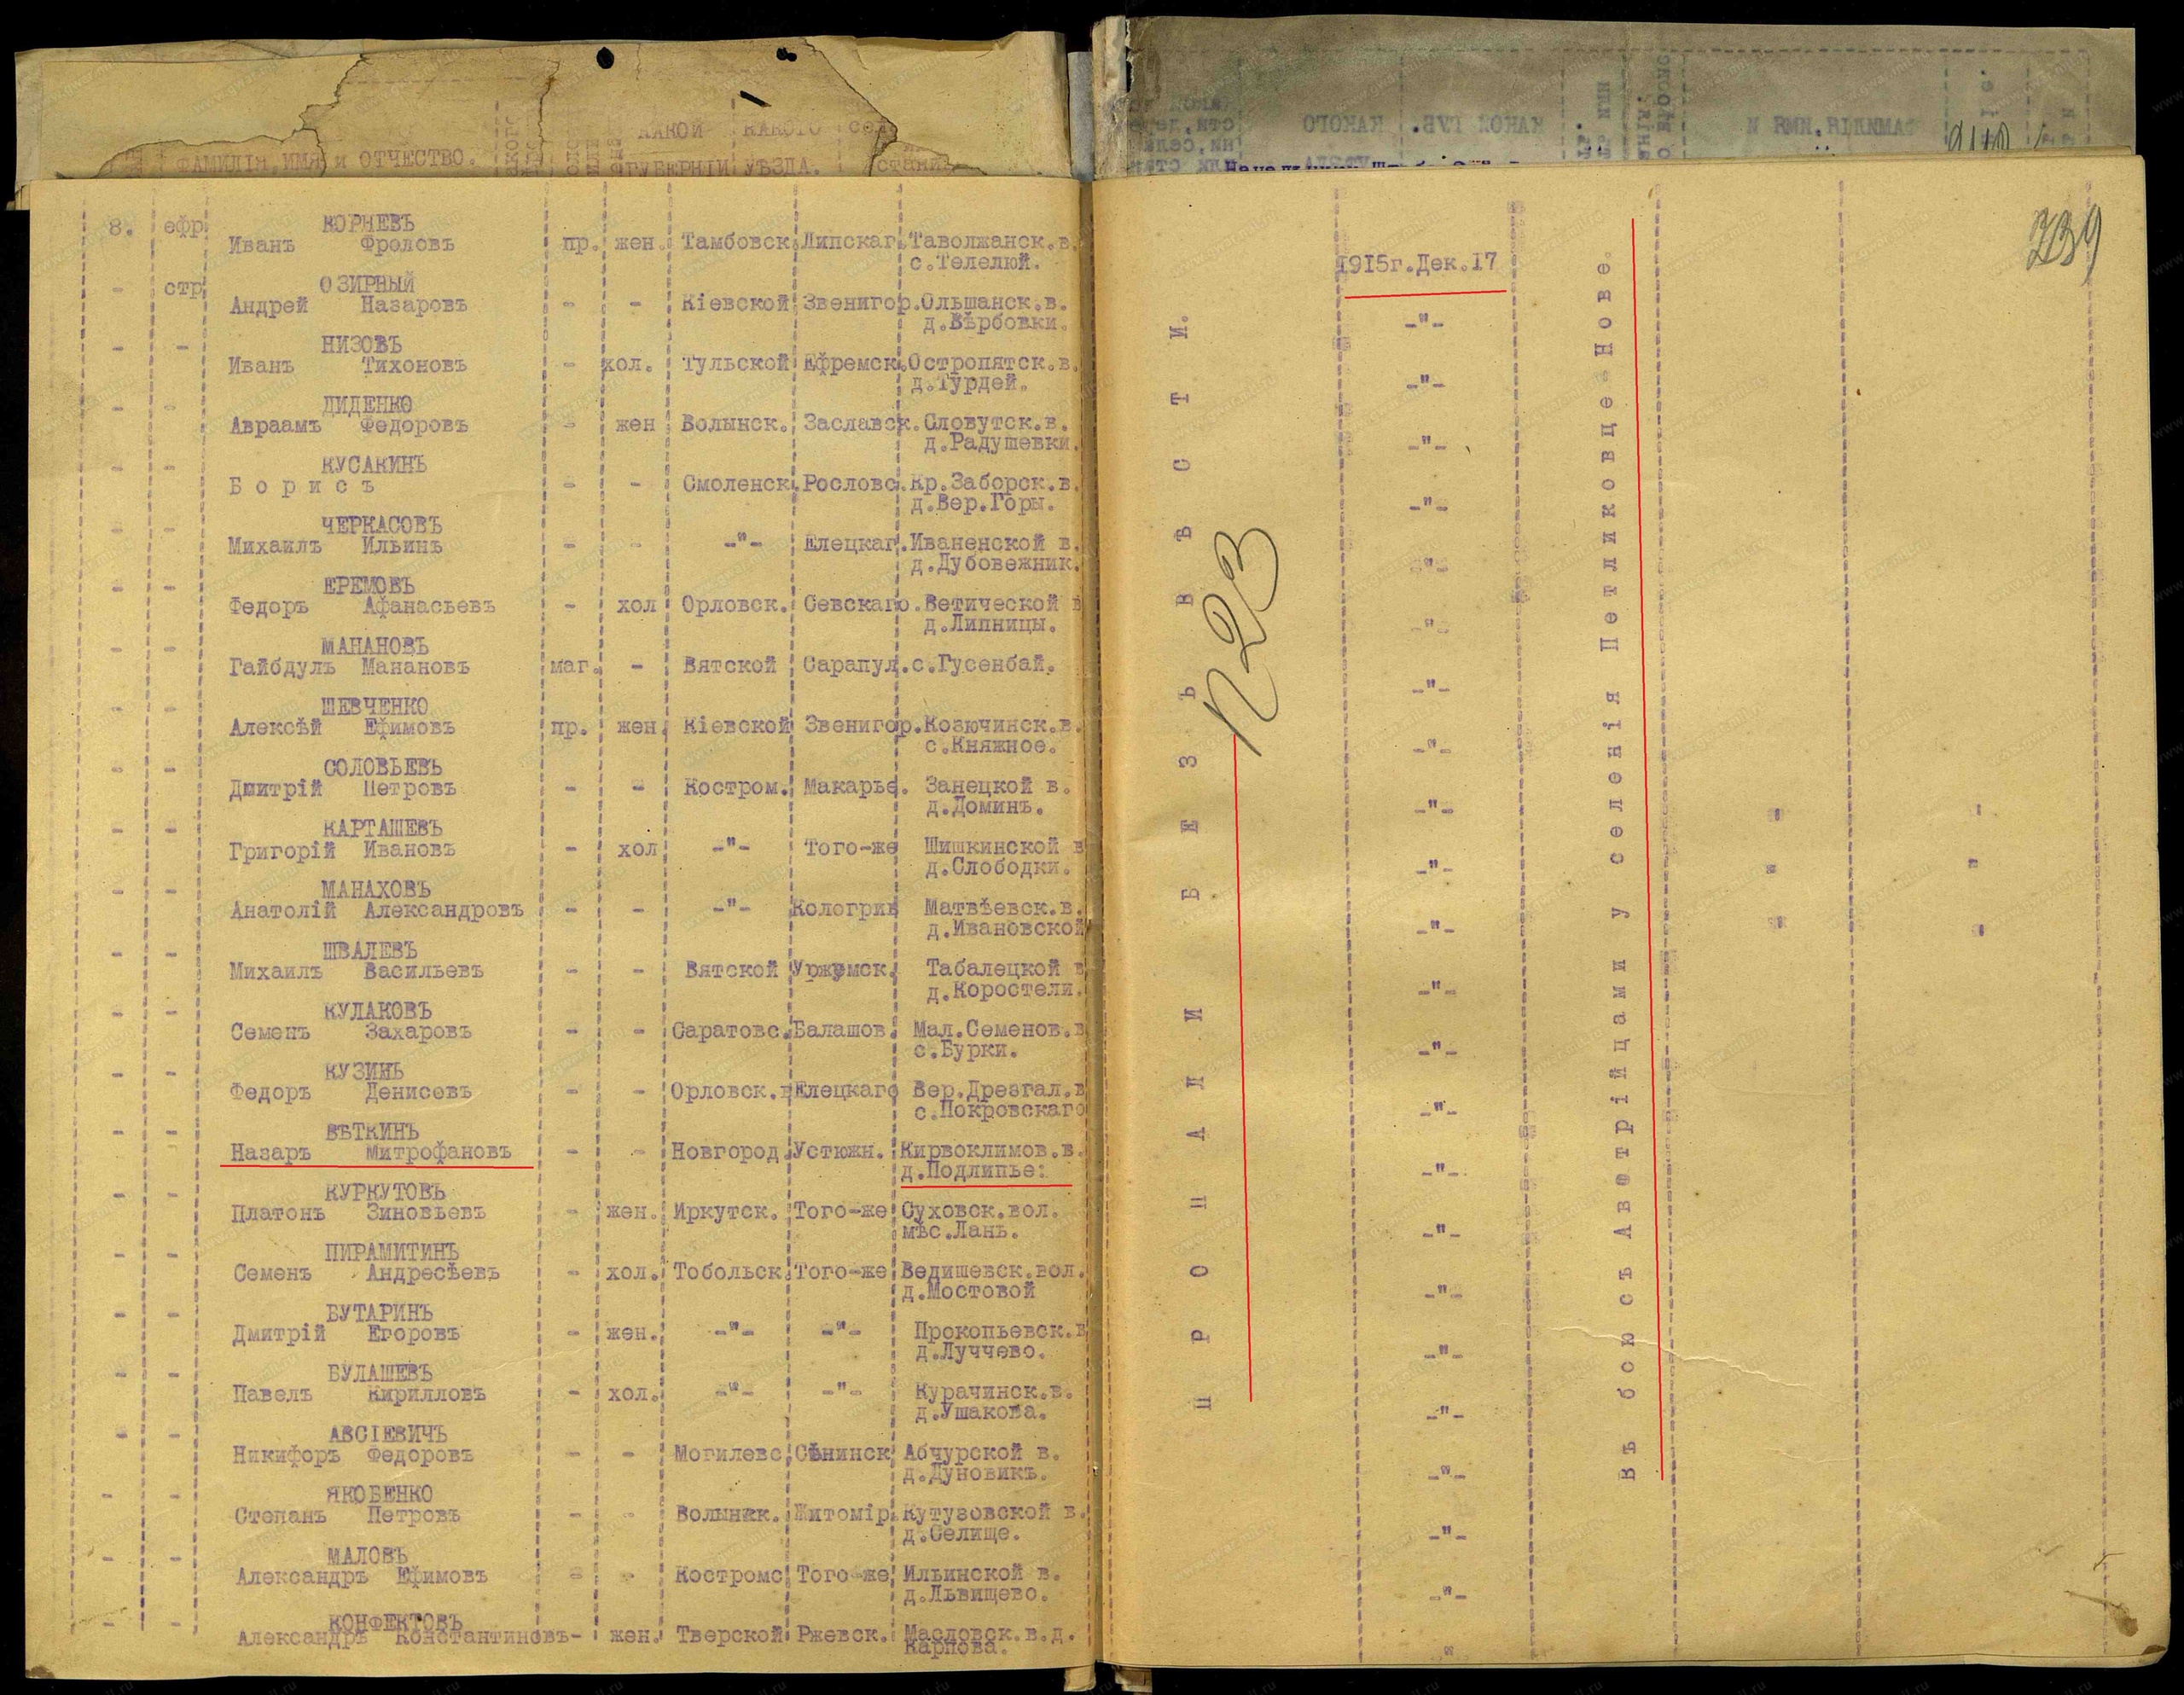 ФАМИЛІЯ, ИМЯ и ОТЧЕСТВО.
КАКОЙ ГУБЕРНІИ
КАКОГО УѢЗДА.
8. ефр КОРНЕВЪ
Иванъ Фроловъ пр. жен. Тамбовск. Липскаг. Таволжанск.в.
с.Телелюй.
- стр ОЗИРНЫЙ
Андрей Назаровъ - - Кіевской Звенигор. Ольшанск.в.
д.Вѣрбовки.
- - НИЗОВЪ
Иванъ Тихоновъ - хол. Тульской Ефремск. Остропятск.в.
д.Турдей.
- - ДИДЕНКО
Авраамъ Федоровъ - жен Волынск. Заславск. Словутск.в.
д.Радушевки.
- - КУСАКИНЪ
Борисъ - - Смоленск. Рословс. Кр.Заборск.в.
д.Вер.Горы.
- - ЧЕРКАСОВЪ
Михаилъ Ильинъ - - -"- Елецкаг. Иваненской в.
д.Дубовежник.
- - ЕРЕМОВЪ
Федоръ Афанасьевъ - хол Орловск. Севскаго. Ветической в
д.Липницы.
- - МАНАНОВЪ
Гайбдулъ Манановъ маг. - Вятской Сарапул. с.Гусенбай.
- - ШЕВЧЕНКО
Алексѣй Ефимовъ пр. жен. Кіевской Звенигор. Козючинск.в.
с.Княжное.
- - СОЛОВЬЕВЪ
Дмитрій Петровъ - - Костром. Макарье. Занецкой в.
д.Доминъ.
- - КАРТАШЕВЪ
Григорій Ивановъ - хол -"- Того-же Шишкинской в
д.Слободки.
- - МАНАХОВЪ
Анатолій Александровъ - - -"- Кологрив Матвѣевск.в.
д.Ивановской
- - ШВАЛЕВЪ
Михаилъ Васильевъ - - Вятской Уржумск. Табалецкой в
д.Коростели.
- - КУЛАКОВЪ
Семенъ Захаровъ - - Саратовс. Балашов. Мал.Семенов.в
с.Бурки.
- - КУЗИНЪ
Федоръ Денисовъ - - Орловск. Елецкаго Вер.Дрезгал.в
с.Покровскаго
- - ВѢТКИНЪ
Назаръ Митрофановъ - - Новгород. Устюжн. Кирвоклимов.в.
д.Подлипье:
- - КУРКУТОВЪ
Платонъ Зиновьевъ - жен. Иркутск. Того-же Суховск.вол.
мѣс.Лань.
- - ПИРАМИТИНЪ
Семенъ Андресѣевъ - хол. Тобольск. Того-же Ведишевск.вол.
д.Мостовой
- - БУТАРИНЪ
Дмитрій Егоровъ - жен. -"- -"- Прокопьевск.в
д.Луччево.
- - БУЛАШЕВЪ
Павелъ Кирилловъ - хол. -"- -"- Курачинск.в.
д.Ушакова.
- - АВСІЕВИЧЪ
Никифоръ Федоровъ - - Могилевс. Сѣнинск Абчурской в.
д.Дуновикъ.
- - ЯКОБЕНКО
Степанъ Петровъ - - Волынск. Житомір. Кутузовской в.
д.Селище.
- - МАЛОВЪ
Александръ Ефимовъ - - Костромс Того-же Ильинской в.
д.Львищево.
- - КОНФЕКТОВЪ
Александръ Константиновъ - жен. Тверской Ржевск. Масловск.в.д.
Карпова.
739
1915г.Дек.17
-"-
-"-
-"-
-"-
-"-
-"-
-"-
-"-
-"-
-"-
-"-
-"-
-"-
-"-
-"-
-"-
-"-
-"-
-"-
-"-
-"-
-"-
"
ПРОПАЛИ БЕЗЪ ВѢСТИ.
n23
Въ бою съ Австрійцами у селенія Петликовце-Нове